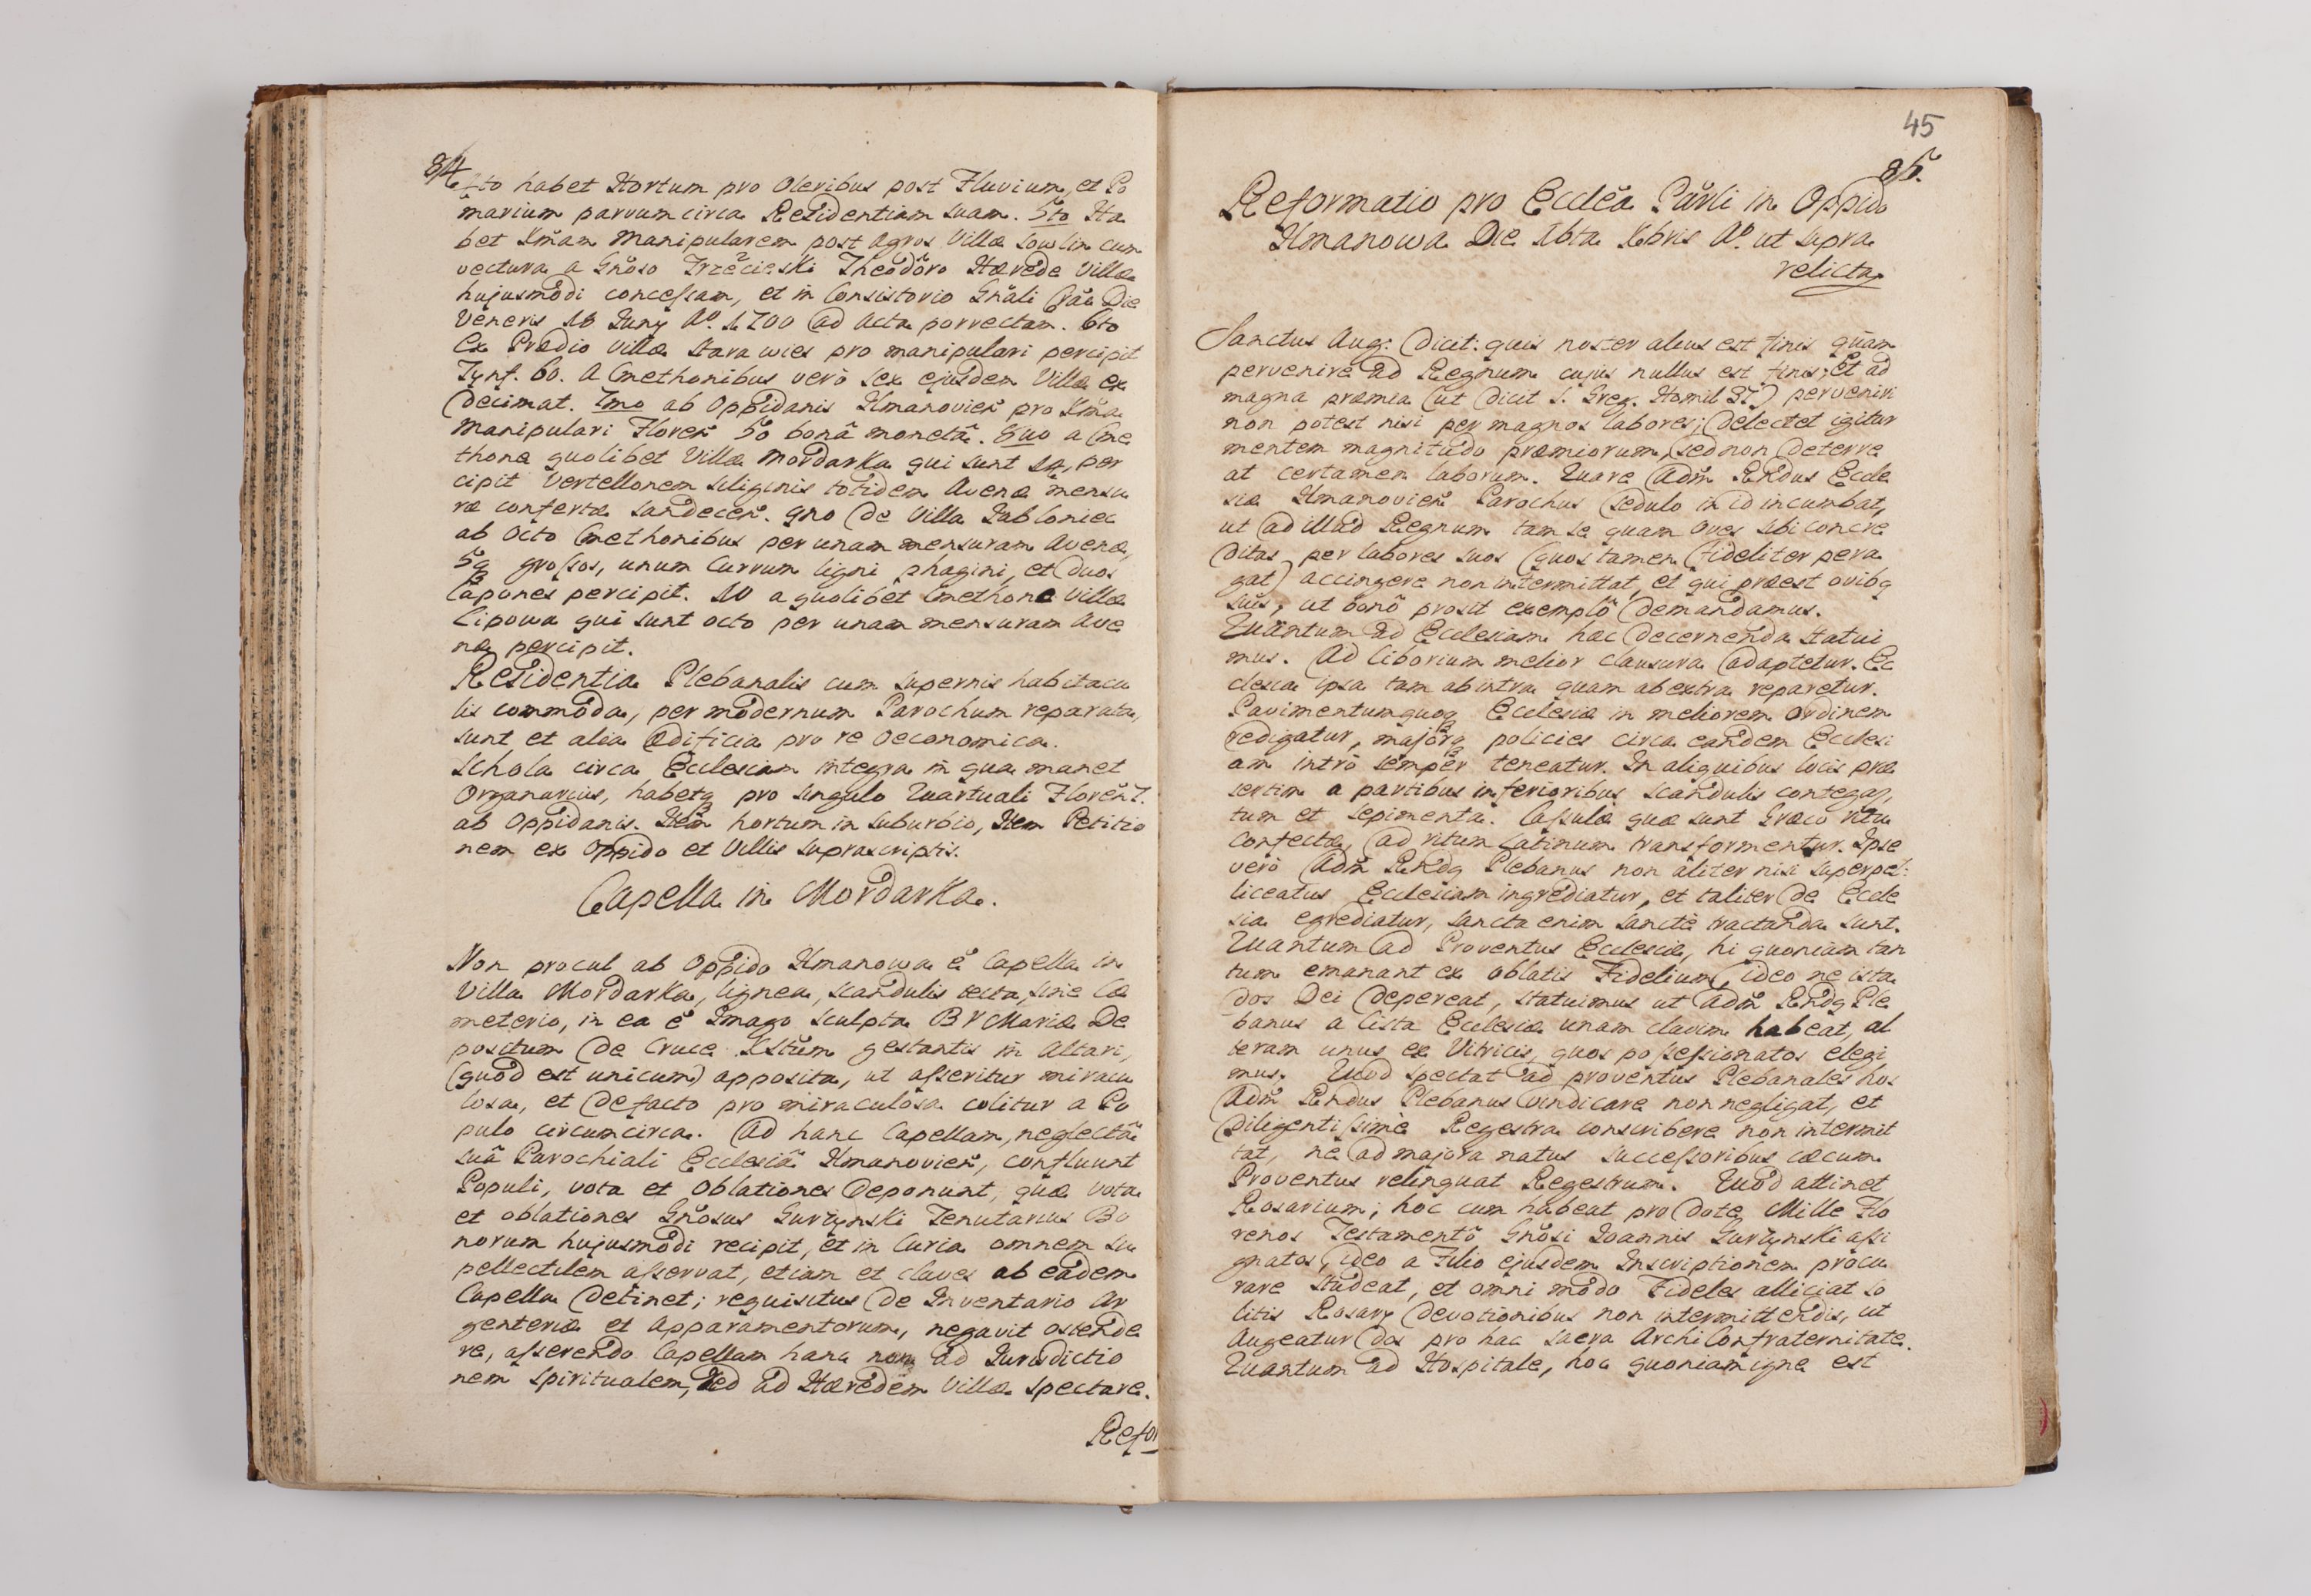 84
4to habet Hortum pro Oleribus post Fluvium, et Po
marium parvum circa Residentiam suam. 5to Ha
bet Xmãm Manipularem post Agros Villæ Sowlin cum
vectura a Gnöso Trzecieski Theodöro Hærede Villæ
hujusmodi concessam, et in Consistorio Gnäli Crãc Die
Veneris 18 Juny Aº. 1700 ad Acta porrectam. 6to
Ex Prædio villæ Stara wies pro manipulari percipit
Tynf. 60. A Cmethonibus verò sex ejusdem Villæ ex
decimat. 7mo ab Oppidanis Ilmanovien̄ pro Xmã
Manipulari Floren̄ 50 bonâ monetâ. 8vo a Cme
thone quolibet Villæ Mordarka qui sunt 14, per
cipit Vertellonem siliginis totidem Avenæ mensu
ræ confertæ Sandecen̄. 9no de Villa Jabloniec
ab Octo Cmethonibus per unam mensuram Avenæ,
54 grossos, unum Currum ligni phagini, et duos
Capones percipit. 10 a quolibet Cmethone Villæ
Lipowa qui sunt octo per unam mensuram Ave
næ percipit.
Residentia Plebanalis cum supernis habitacu
lis commoda, per modernum Parochum reparata,
sunt et alia Ædificia pro re Oeconomica.
Schola circa Ecclesiam integra in qua manet
Organarius, habetq pro singulo Quartuali Floren̄ 7.
ab Oppidanis. Item hortum in suburbio, Item Petitio
nem ex Oppido et Villis suprascriptis.
Capella in Mordarka.
Non procul ab Oppido Ilmanowa ẽ Capella in
Villa Mordarka, lignea, scandulis tecta, sine Cæ
meterio, in ea ẽ Imago sculpta B V Mariæ De
positum de Cruce Xstum̃ gestantis in Altari,
(quod est unicum) apposita, ut asseritur miracu
losa, et defacto pro miraculosa colitur a Po
pulo circumcirca. Ad hanc Capellam, neglectâ
suâ Parochiali Ecclesiâ Ilmanovien̄, confluunt
Populi, vota et Oblationes deponunt, quæ vota
et oblationes Gnösus Gurzynski Tenutarius Bo
norum hujusmodi recipit, et in Curia omnem su
pellectilem asservat, etiam et claves ab eâdem
Capella detinet; requisitus de Inventario Ar
genteriæ et Apparamentorum, negavit ostende
re, asserendo Capellam hanc non ad Jurisdictio
nem Spiritualem, sed ad Hæredem Villæ spectare.
Refor
45
85.
Reformatio pro Ecclẽa Pärli in Oppido
Ilmanowa Die 16ta Xbris Aº. ut supra
relicta.
Sanctus Aug: dicit: quis noster alius est finis quam
pervenire ad Regnum cujus nullus est finis; Et ad
magna præmia (ut dicit S. Greg. Homil 37) perveniri
non potest nisi per magnos labores; Delectet igitur
mentem magnitudo præmiorum, sed non deterre
at certamen laborum. Quare Adm̃ Rndus Eccle
siæ Ilmanovien̄ Parochus sedulo in id incumbat,
ut ad illud Regnum tam se quam Oves sibi concre
ditas, per labores suos (quos tamen fideliter pera
gat) accingere non intermittat, et qui præest ovibq
suis, ut bonô prosit exemplô demandamus.
Quantum ad Ecclesiam hæc decernenda statui
mus. Ad Ciborium melior clausura adaptetur. Ec
clesia ipsa tam ab intra quam ab extra reparetur.
Pavimentumquoq Ecclesiæ in meliorem Ordinem
redigatur, majorq policies circa eandem Ecclesi
am intrò semper teneatur. In aliquibus locis præ
sertim a partibus inferioribus scandulis contegaz,
tum et sepimenta. Cassulæ quæ sunt Græco ritu
confectæ, ad ritum Latinum transformentur. Ipse
verò Adm̃ Rndq Plebanus non aliter nisi superpel:
liceatus Ecclesiam ingrediatur, et taliter de Eccle
sia egrediatur, sancta enim sanctè tractanda sunt.
Quantum ad Proventus Ecclesiæ, hi quoniam tan
tum emanant ex oblatis Fidelium, ideo ne ista
dos Dei depereat, statuimus ut Adm̃ Rndq Ple
banus a Cista Ecclesiæ unam clavim habeat, al
teram unus ex Vitricis, quos possessionatos elegi
mus. Quod spectat ad proventus Plebanales hos
Adm̃ Rndus Plebanus vindicare non negligat, et
diligentissimè Regestra conscribere non intermit
tat, ne ad majora natus successoribus cæcum
Proventus relinquat Regestrum. Quod attinet
Rosarium; hoc cum habeat pro Dote Mille Flo
renos Testamentô Gnösi Joannis Gurzynski assi
gnatos, ideo a Filio ejusdem Inscriptionem procu
rare studeat, et omni modo Fideles alliciat so
litis Rosary devotionibus non intermittendis, ut
Augeatur dos pro hac sacra ArchiConfraternitate.
Quantum ad Hospitale, hoc quoniam igne est